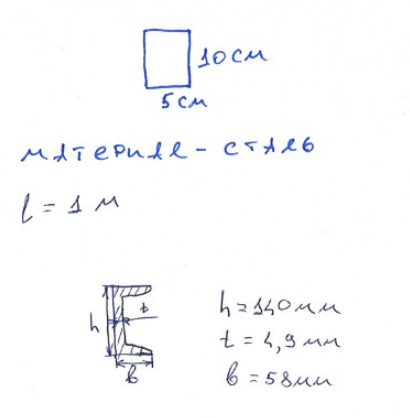 10 см
5 см
материал - сталь
l = 1 м
h
t
b
h = 140 мм
t = 4,9 мм
b = 58 мм